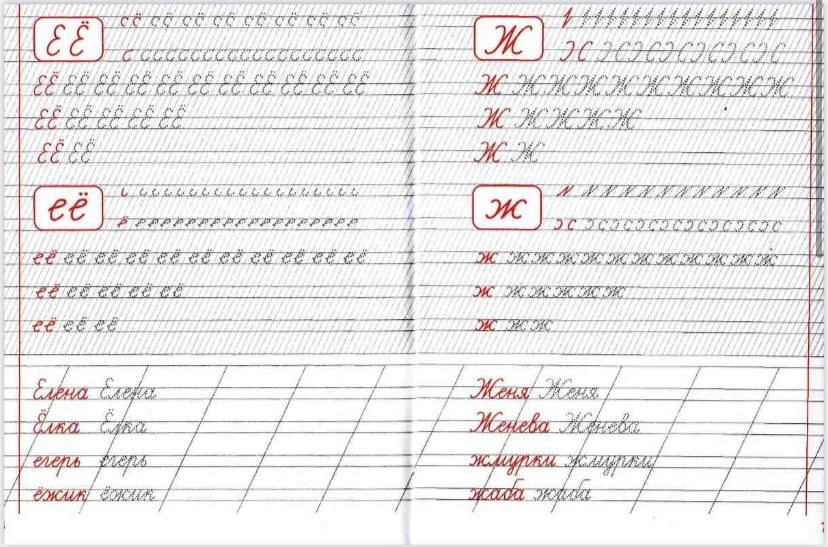 ЕЁ
ЕЁ ЕЁ ЕЁ ЕЁ ЕЁ ЕЁ ЕЁ ЕЁ ЕЁ ЕЁ ЕЁ
ЕЁ ЕЁ ЕЁ ЕЁ ЕЁ
ЕЁ ЕЁ
её
её её её её её её её её её её её
её её её её её
её её её
Елена Елена
Ёлка Ёлка
егерь егерь
ёжик ёжик
Ж
Ж ЖЖЖЖЖЖЖЖЖ
Ж ЖЖЖЖ
Ж Ж
ж
ж жжжжжжжжжжж
ж жжжжж
ж жж
Женя Женя
Женева Женева
жмурки жмурки
жаба жаба